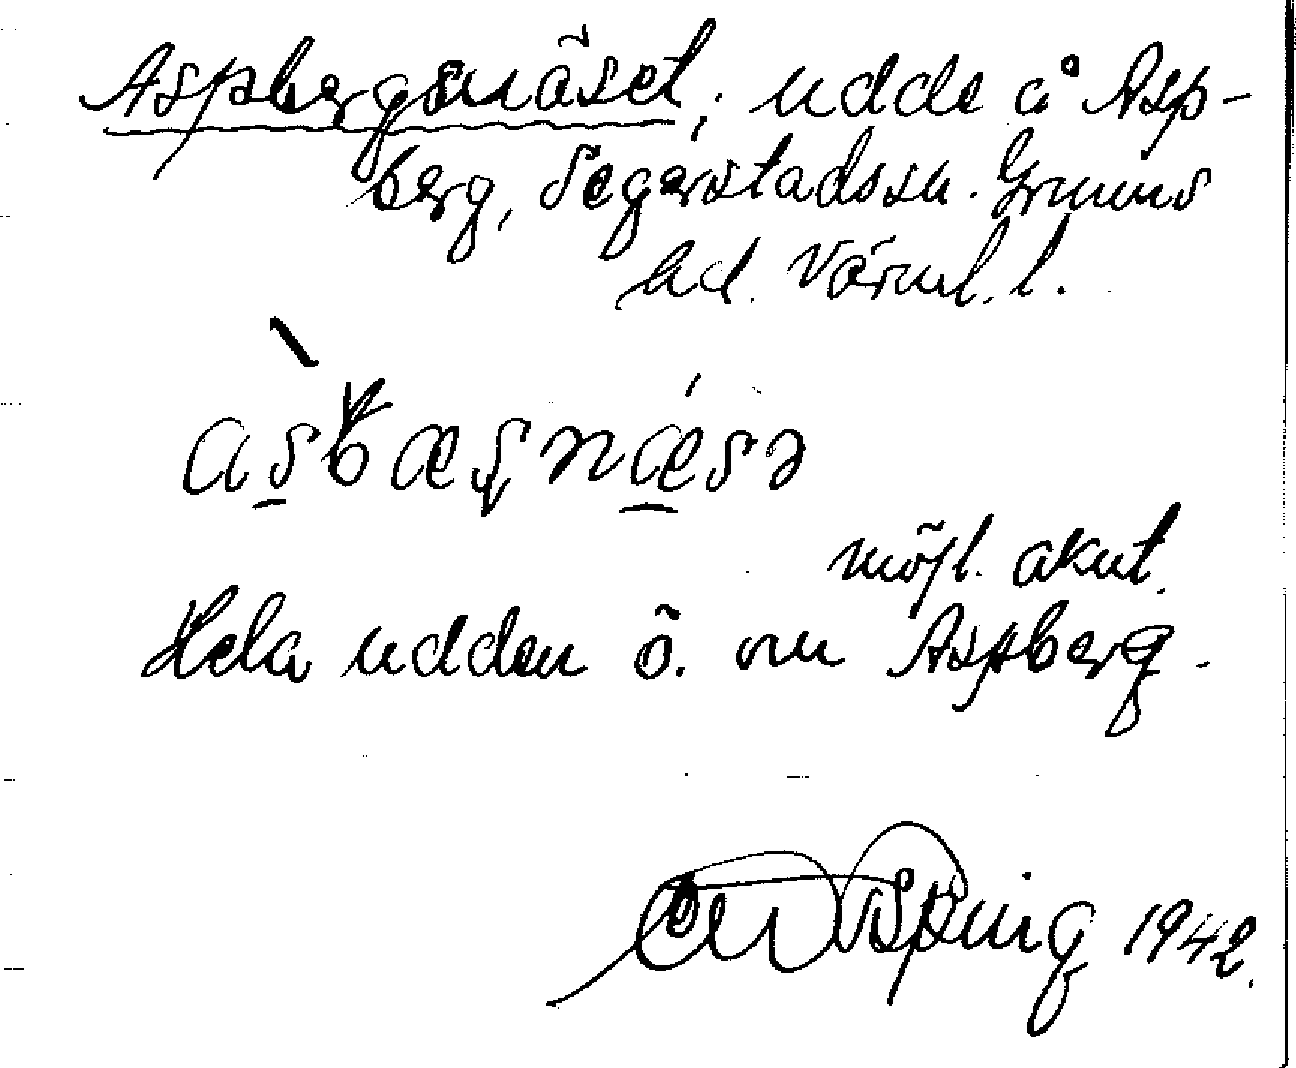 Aspbergsnäset; udde å Asp-
berg, Segerstads sn. Grums
hd. Värml. l.
asbæsnæsə
möjl. akut.
Hela udden ö. om Aspberg.
1942.